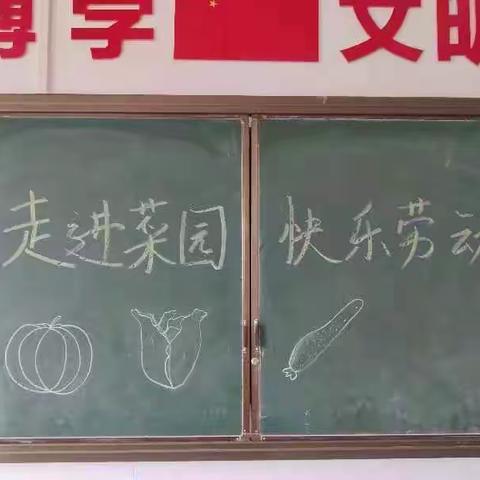 博学 文明
走进菜园 快乐劳动